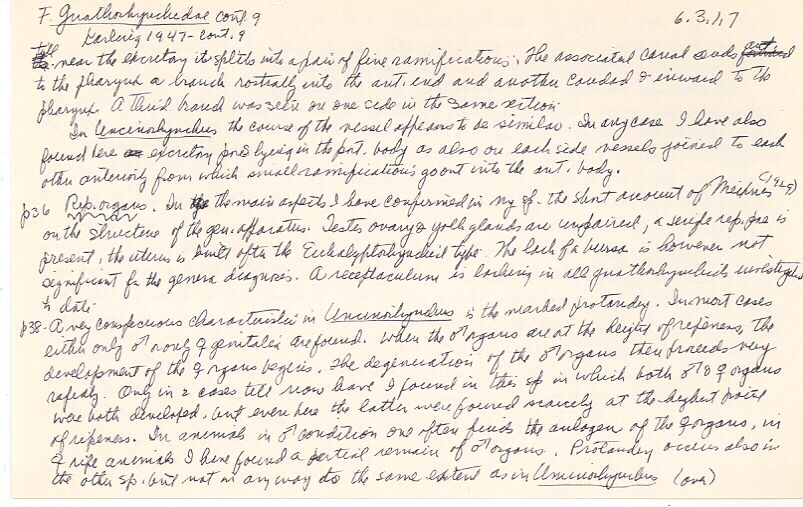 F. Gnathorhynchidae cont. 9
6.3.1,7
Karling 1947 - cont. 9
near the excretory its splits into a pair of fine ramifications. The associated canal sends
to the pharynx a branch rostrally into the ant. end and another caudad & inward to the
pharynx. A third branch was seen on one side in the same section.
In Uncinorhynchus the course of the vessel appears to be similar. In any case I have also
found here excretory pore lying in the post. body as also on each side vessels joined to each
other anteriorly from which small ramifications go out into the ant. body.
p36 Rep. organs. In the main aspects I have confirmed in my sp. the short account of Meixner (1929)
on the structure of the gen. apparatus. Testes ovary & yolk glands are unpaired, a single rep. pore is
present, the uterus is built after the Eukalyptorhynchid type. The lack of a bursa is however not
significant for the genera diagnosis. A receptaculum is lacking in all gnathorhynchids investigated
to date.
p38. A very conspicuous characteristic in Uncinorhynchus is the marked protandry. In most cases
either only ♂ or only ♀ genitalia are found. When the ♂ organs are at the height of ripeness, the
development of the ♀ organs begins. The degeneration of the ♂ organs then proceeds very
rapidly. Only in 2 cases till now have I found in this sp in which both ♂ & ♀ organs
were both developed, but even here the latter were found scarcely at the highest point
of ripeness. In animals in ♂ condition one often finds the anlagen of the ♀ organs, in
♀ ripe animals I have found a partial remain of ♂ organs. Protandry occurs also in
the other sp. but not in any way to the same extent as in Uncinorhynchus (over)